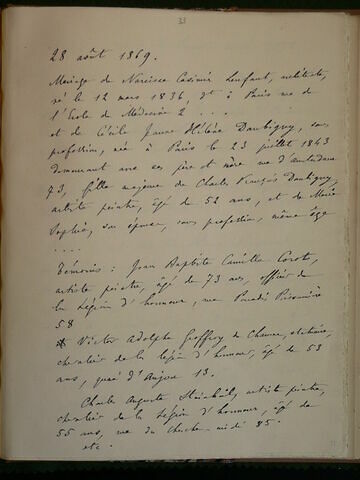 33
28 août 1869.
Mariage de Narcisse Casimir Lenfant, architecte,
né le 12 mars 1836, dt à Paris rue de
l'Ecole de Médecine 2 . . .
et de Cécile Jeanne Hélène Daubigny, sans
profession, née à Paris le 23 juillet 1843
demeurant avec ses père et mère rue d'Amsterdam
73, fille majeure de Charles François Daubigny,
artiste peintre, âgé de 52 ans, et de Marie
Sophie, son épouse, sans profession, même âge
. . . .
Témoins : Jean Baptiste Camille Corot,
artiste peintre, âgé de 73 ans, officier de
la Légion d'honneur, rue Paradis Poissonnière
58
Victor Adolphe Geoffroy de Chaume, statuaire,
chevalier de la légion d'honneur, âgé de 53
ans, quai d'Anjou 13.
Charles Auguste Steinheil, artiste peintre,
chevalier de la Légion d'honneur, âgé de
55 ans, rue du Cherche-midi 85.
etc.